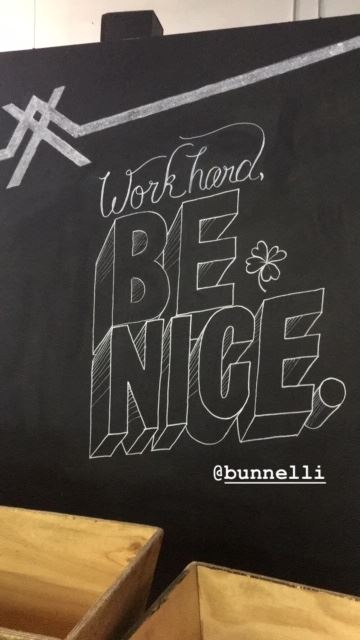 Work hard,
BE
NICE.
@bunnelli